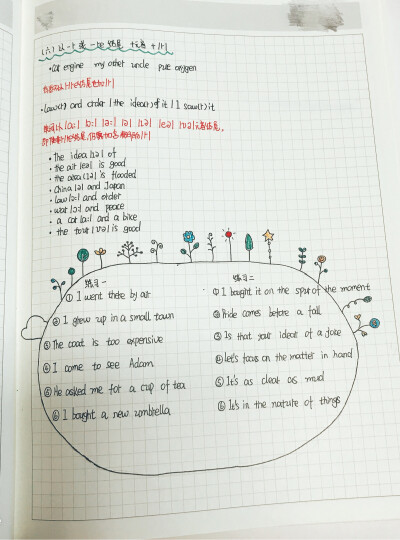 (六) 以 -r 或 -re 结尾 +元音 +|r|
• car engine my other uncle pure oxygen
• law(r) and order | the idea(r) of it | I saw(r) it
• the idea |ɪə| of
• the air |eə| is good
• the area |ɪə| is flooded
• China |ə| and Japan
• law |ɔ:| and order
• war |ɔ:| and peace
• a car |ɑ:| and a bike
• the tour |ʊə| is good
练习一
① I went there by air
② I grew up in a small town
③ The coat is too expensive
④ I come to see Adam
⑤ He asked me for a cup of tea
⑥ I bought a new umbrella
练习二
① I bought it on the spur of the moment
② Pride comes before a fall
③ Is that your idear of a joke
④ let's focus on the matter in hand
⑤ It's as clear as mud
⑥ It's in the nature of things